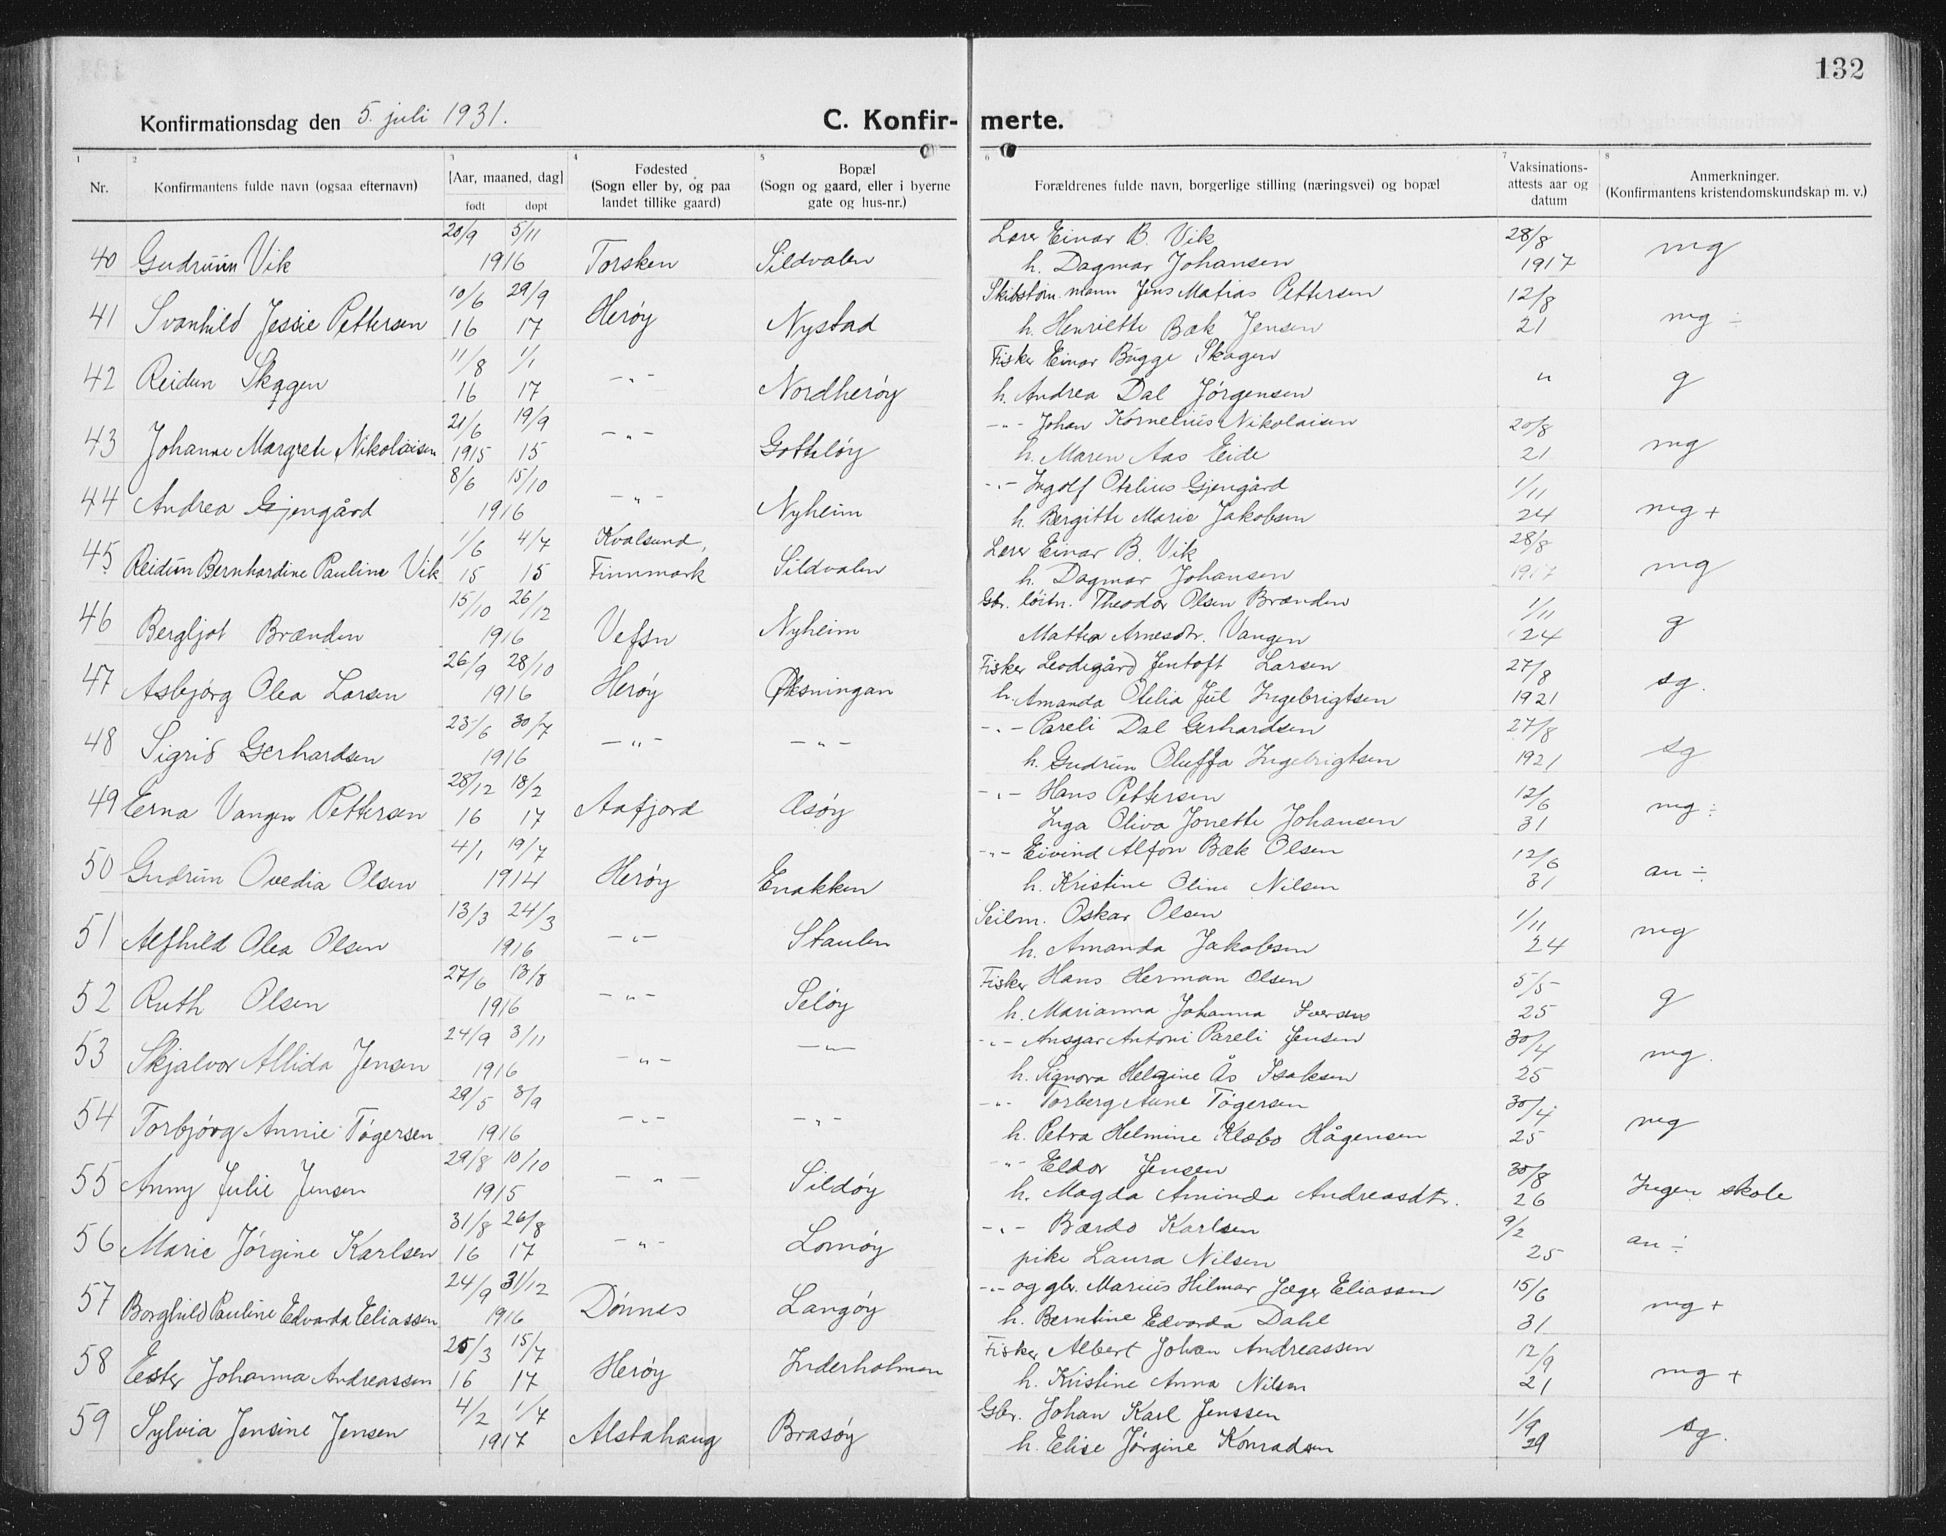 132
Konfirmationsdag den 5. juli 1931. C. Konfir- merte.
1 2 3 4 5 6 7 8
Nr. Konfirmantens fulde navn (ogsaa efternavn) [Aar, maaned, dag] født døpt Fødested (Sogn eller by, og paa landet tillike gaard) Bopæl (Sogn og gaard, eller i byerne gate og hus-nr.) Forældrenes fulde navn, borgerlige stilling (næringsvei) og bopæl Vaksinations-attests aar og datum Anmerkninger. (Konfirmantens kristendomskundskap m. v.)
20/9 5/11 Lærer Einar B. Vik 28/8
40 Gudrun Vik 1916 Torsken Sildvalen h. Dagmar Johansen 1917 mg
10/6 29/9 mann Jens Matias Pettersen 12/8
41 Svanhild Jessie Pettersen 16 17 Herøy Nystad h. Henriette Bæk Jensen 21 mg ÷
11/8 1/1 Fisker Einar Bugge Skagen
42 Reidun Skagen 16 17 -"- Nordherøy h. Andrea Dal Jørgensen " g
21/6 19/9 -"- Johan Kornelius Nikolaisen 20/8
43 Johanne Margrete Nikolaisen 1915 15 -"- Gotteløy h. Maren Aas Eide 21 mg
8/6 15/10 -"- Ingolf Otelius Gjengård 1/11
44 Andrea Gjengård 1916 -"- Nyheim h. Bergitte Marie Jakobsen 24 mg +
1/6 4/7 Kvalsund, Lærer Einar B. Vik 28/8
45 Reidun Bernhardine Pauline Vik 15 15 Finnmark Sildvalen h. Dagmar Johansen 1917 mg
15/10 26/12 Gbr. løitn. Theodor Olsen Brænden 1/11
46 Bergljot Brænden 1916 Vefsn Nyheim Mattea Arnesdtr. Vangen 24 g
26/9 28/10 Fisker Leodegård Jentoft Larsen 27/8
47 Asbjørg Olea Larsen 1916 Herøy Øksningan h. Amanda Otelia Jul Ingebrigtsen 1921 sg.
23/6 30/7 -"- Pareli Dal Gerhardsen 27/8
48 Sigrid Gerhardsen 1916 -"- -"- h. Gudrun Oluffa Ingebrigtsen 1921 sg
28/12 18/2 -"- Hans Pettersen 12/6
49 Erna Vangen Pettersen 16 17 Aafjord Åsøy Inga Oliva Jonette Johansen 31 mg ÷
4/1 19/7 -"- Eivind Alfon Bæk Olsen 12/6
50 Gudrun Ovedia Olsen 1914 Herøy Enakken h. Kristine Oline Nilsen 31 an ÷
13/3 24/3 Seilm. Oskar Olsen 1/11
51 Alfhild Olea Olsen 1916 -"- Staulen h. Amanda Jakobsen 24 mg
27/6 13/8 Fisker Hans Herman Olsen 5/5
52 Ruth Olsen 1916 -"- Seløy h. Marianna Johanna Iversen 25 g
24/9 3/11 -"- Ansgar Antoni Pareli Jensen 30/4
53 Skjalvor Allida Jensen 1916 -"- -"- h. Signora Helgine Ås Isaksen 25 mg.
29/5 3/9 -"- Torberg Aune Tøgersen 30/4
54 Torbjørg Annie Tøgersen 1916 -"- -"- h. Petra Helmine Klæbo Hågensen 25 mg
29/8 10/10 -"- Eldor Jensen 30/8
55 Anny Julie Jensen 1915 -"- Sildøy h. Magda Aminda Andreasdtr. 26 Ingen skole
31/8 26/8 -"- Bærdo Karlsen 9/2
56 Marie Jørgine Karlsen 16 17 -"- Lomøy pike Laura Nilsen 25 an ÷
24/9 31/12 -"- og gbr. Marius Hilmar Jæger Eliassen 15/6
57 Borghild Pauline Edvarda Eliassen 1916 Dønnes Langøy h. Berntine Edvarda Dahl 31 mg +
25/3 15/7 Fisker Albert Johan Andreassen 12/9
58 Ester Johanna Andreassen 16 17 Herøy Inderholmen h. Kristine Anna Nilsen 21 mg +
4/2 1/7 Gbr. Johan Karl Jenssen 1/9
59 Sylvia Jensine Jensen 1917 Alstahaug Brasøy h. Elise Jørgine Konradsen 29 sg.